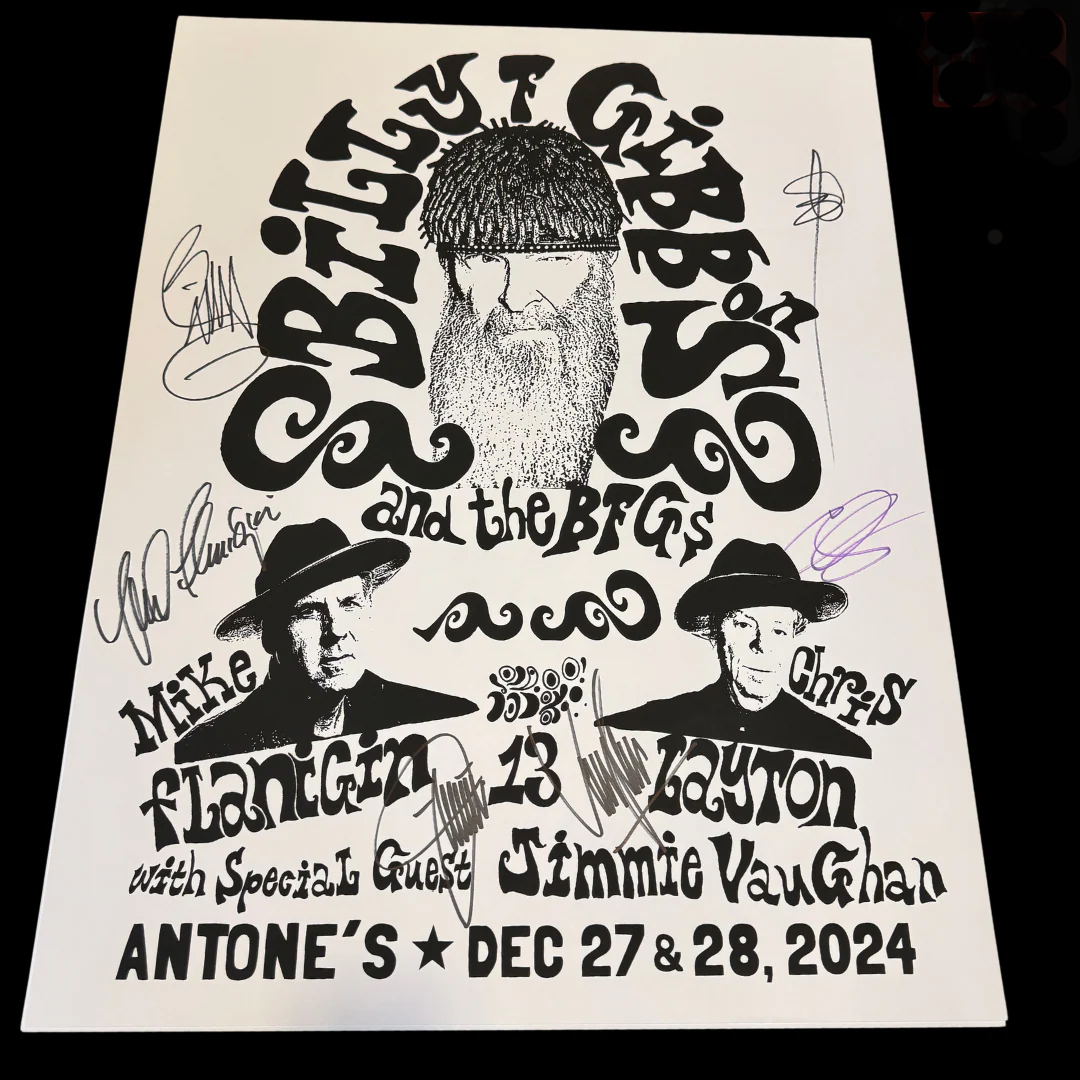 BiLLy F GiBBonS
and the BFGs
Mike Flanigin
13
Chris Layton
with Special Guest Jimmie Vaughan
ANTONE'S ★ DEC 27 & 28, 2024